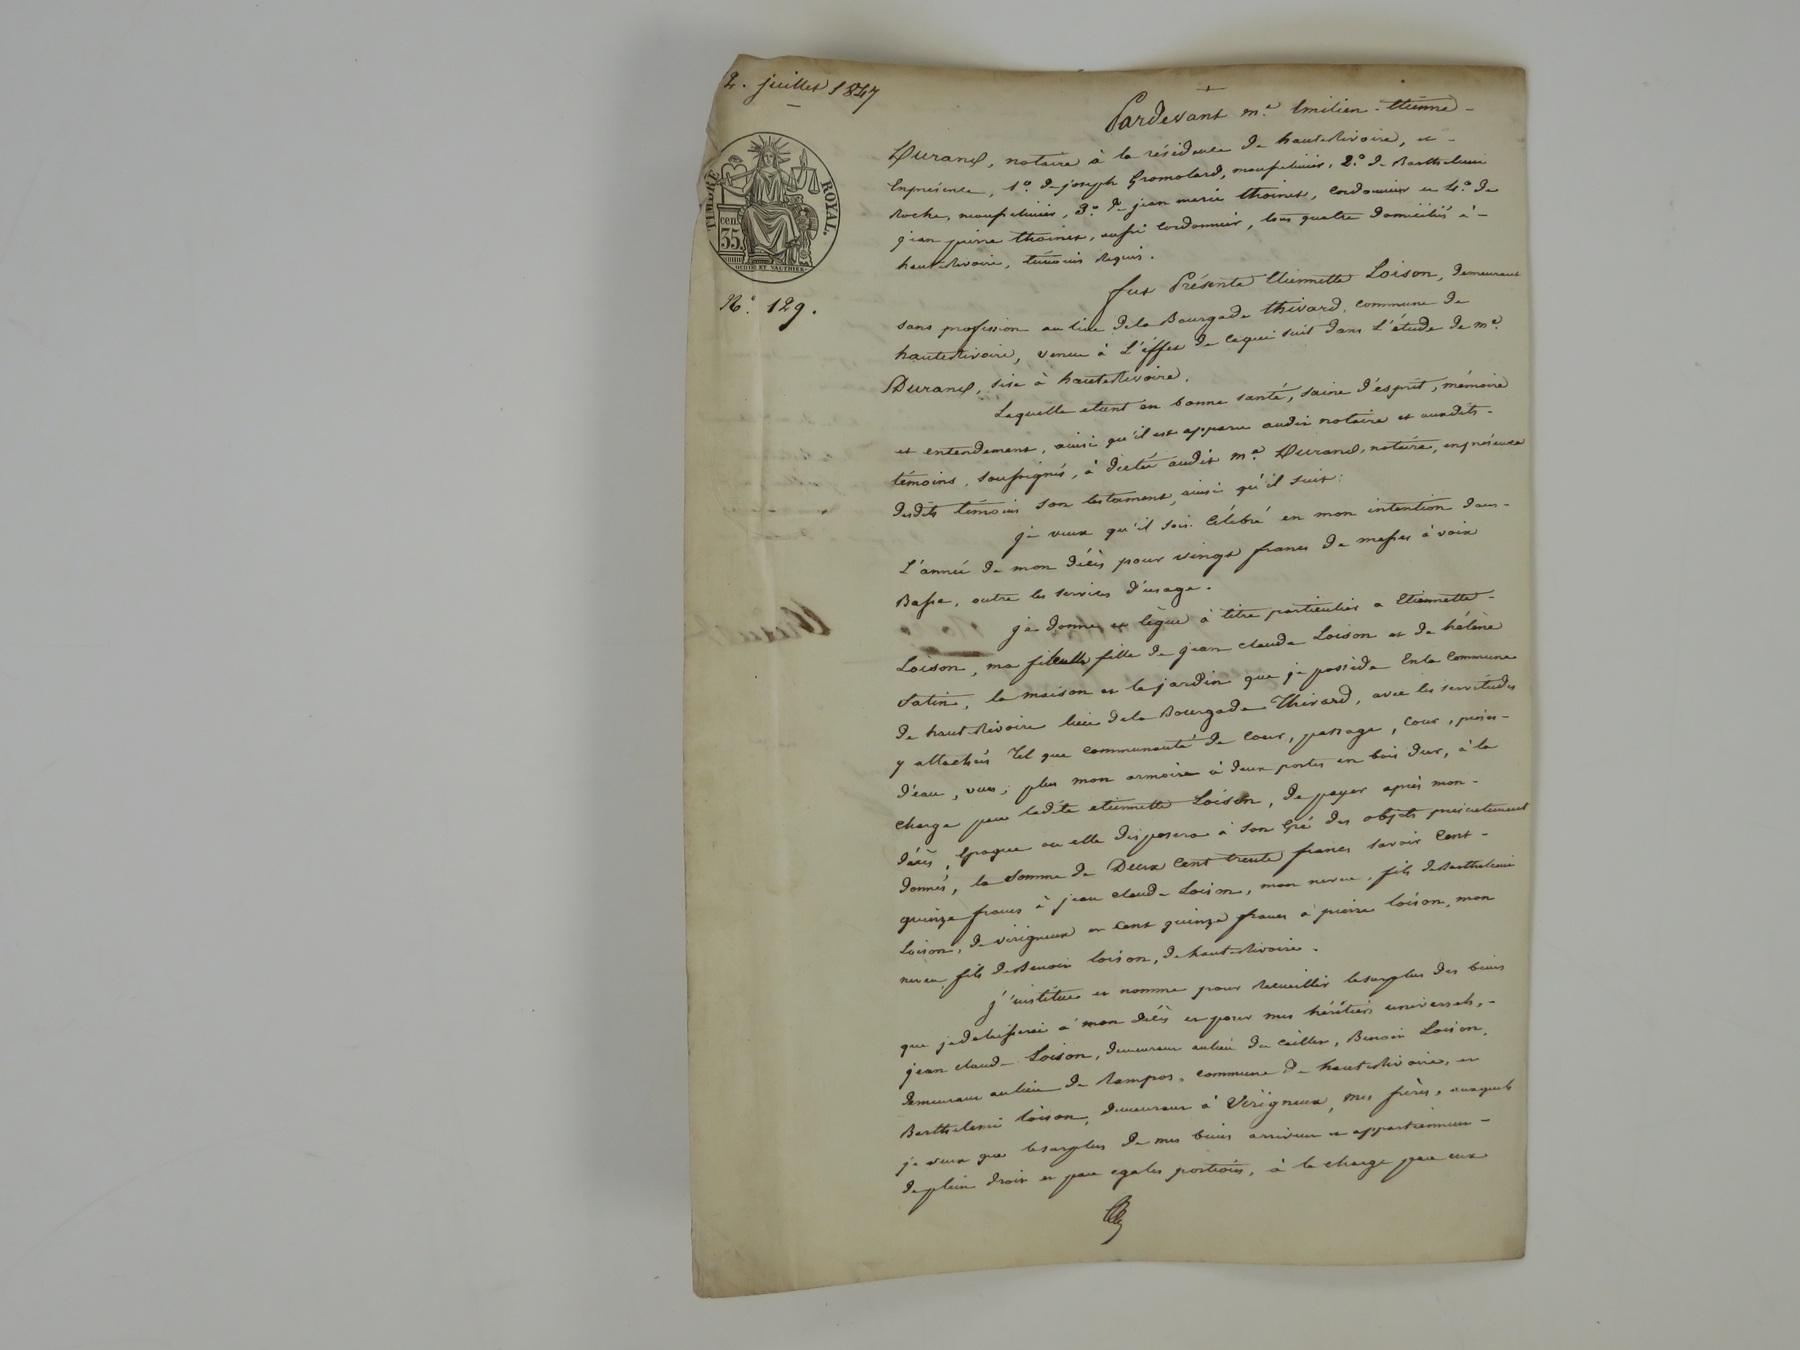 2. juillet 1847
Pardevant me. Emilien-Etienne-
Durand, notaire à la résidence de hauterivoire, et-
Enprésence, 1o. de joseph Gromolard, menuisier, 2o. de Barthelemi
Roche, menuisier, 3o. de jean marie thoinet, cordonnier et 4o. de
jean pierre thoinet, aussi cordonnier, tous quatre domiciliés à-
hauterivoire, témoins requis.
TIMBRE ROYAL.
cen.
35
OUDINÉ ET VAUTHIER.
No. 129.
fut Présente Etiennette Loison, demeurant
sans profession au lieu dela Bourgade thivard, commune de
hauterivoire, venue à L'effet de cequi suit dans L'étude de me.
Durand, sise à hauterivoire.
Laquelle etant en bonne santé, saine d'esprit, mémoire
et entendement, ainsi qu'il est apparu audit notaire et auxdits-
témoins, soussignés, à dicté audit me. Durand, notaire, enprésence
desdits témoins son testament, ainsi qu'il suit:
je veux qu'il soit Célébré en mon intention dans-
L'année de mon décès pour vingt francs de messes à voix
Basse, outre les services d'usage.
je donne et lègue à titre particulier a Etiennette-
Loison, ma filleulle fille de jean claude Loison et de hélène
Satin, la maison et le jardin que je possède Enla Commune
de hauterivoire lieu dela Bourgade Thivard, avec les servitudes
y attachés tel que communauté de Cour, passage, Cour, prise-
d'eau, vues; plus mon armoire à deux portes en bois dur, à la
Charge par ladite etiennette Loison, de payer après mon-
décès, Epoque ou elle disposera à son Gré des objets précitement
donnés, la Somme de Deux Cent trente francs savoir Cent-
quinze francs à jean claude Loison, mon neveu, fils deBarthelemi
Loison, de virigneux et Cent quinze francs à pierre loison, mon
neveu, fils deBenoit loison, de hauterivoire.
j'institue et nomme pour Recueillir lesurplus des biens
que jedelaisserai à mon décès et pour mes héritiers universels,-
jean claude Loison, demeurant aulieu du Benoit Loison,
demeurant aulieu de Rampos, commune de hauterivoire, et
Barthelemi loison, demeurant à Virigneux, mes frères, auxquels
je veux que lesurplus de mes biens arrivent et appartiennent-
deplein droit et par egales portions, à la charge par eux